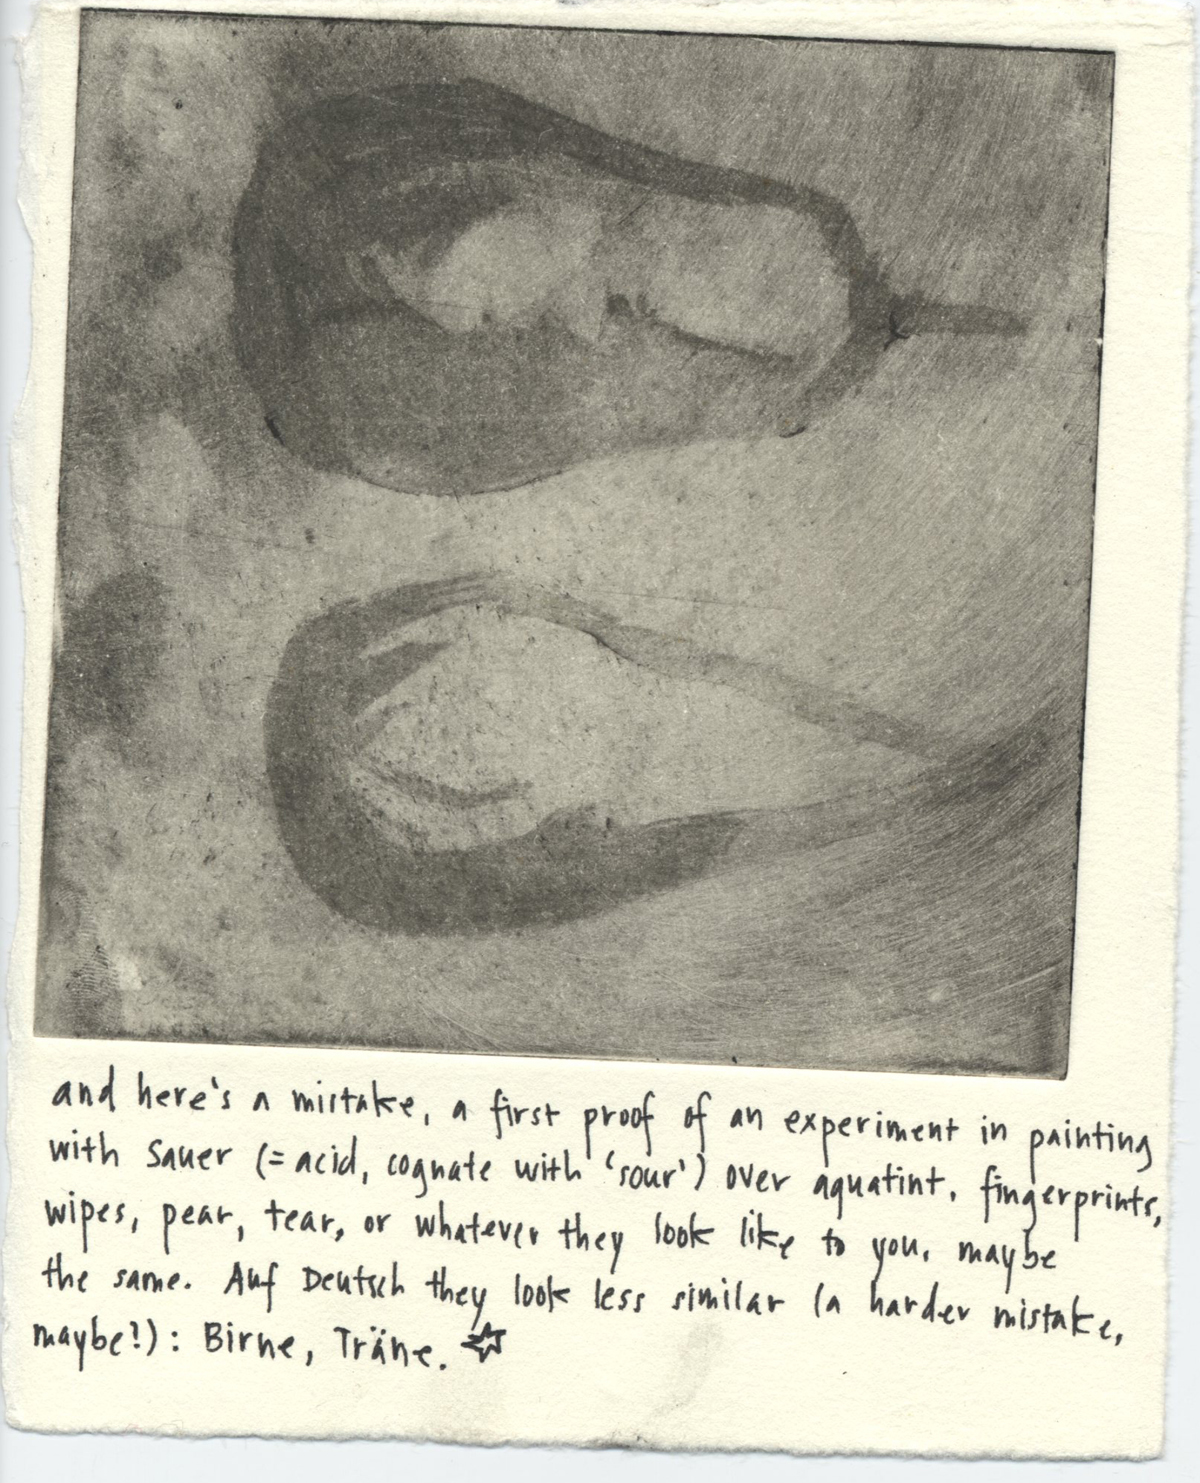 and here's a mistake, a first proof of an experiment in painting
with Sauer (= acid, cognate with 'sour') over aquatint. fingerprints,
wipes, pear, tear, or whatever they look like to you. maybe
the same. Auf Deutsch they look less similar (a harder mistake,
maybe?): Birne, Träne.